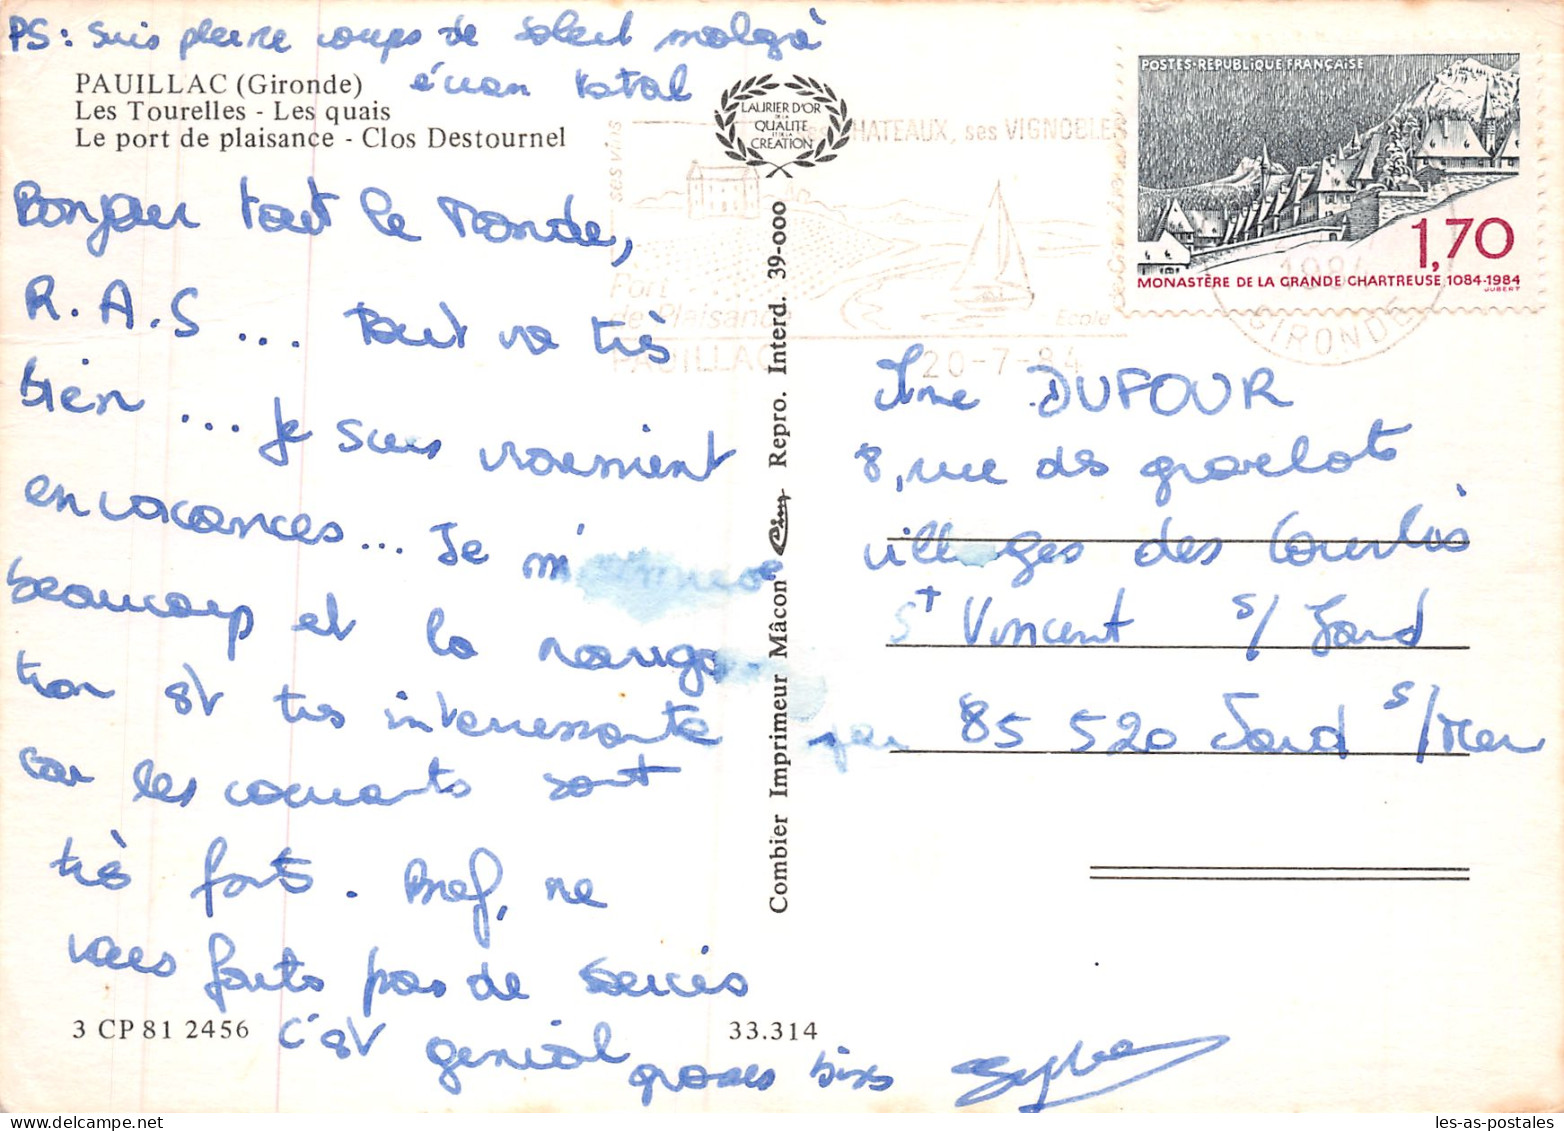 PS: Suis pleine coups de soleil malgrè
écran total
PAUILLAC (Gironde)
Les Tourelles - Les quais
Le port de plaisance - Clos Destournel
LAURIER D'OR
DE LA
QUALITE
ET DE LA
CREATION
ses VINS
ses CHATEAUX, ses VIGNOBLES
Port
de Plaisance
Ecole
PAUILLAC
20-7-84
1984
GIRONDE
POSTES·REPUBLIQUE FRANÇAISE
1,70
MONASTÈRE DE LA GRANDE CHARTREUSE 1084-1984
JUBERT
Bonjour tout le monde,
R.A.S ... Tout va très
bien ... Je suis vraiment
en vacances ... Je m'amuse
beaucoup et la naviga-
tion est très interressante
car les courants sont
très forts. Bref, ne
vous faites pas de soucis
C'est génial
grosses bixs
3 CP 81 2456
33.314
Combier Imprimeur Mâcon Cim Repro. Interd. 39-000
Mme DUFOUR
8, rue des gravelots
villages des Courlis
St Vincent s/ Jard
85 520 Jard s/Mer
les-as-postales